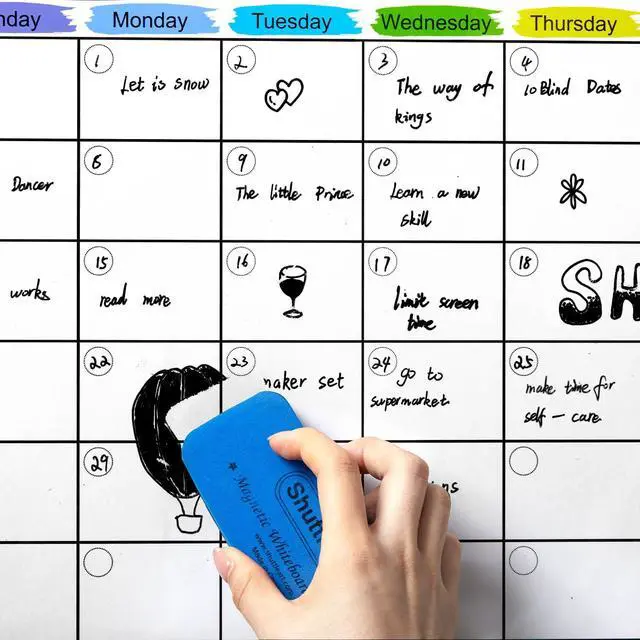 nday Monday Tuesday Wednesday Thursday
1 Let is snow
2
3 The way of
kings
4 10 Blind Dates
Dancer
8
9 The little Prince
10 Learn a new
skill
11
works
15 read more
16
17 limit screen
time
18 SH
22
23 naker set
24 go to
supermarket
25 make time for
self - care
29
ns
Shutt
Magnetic Whiteboard
www.shuttleart.com